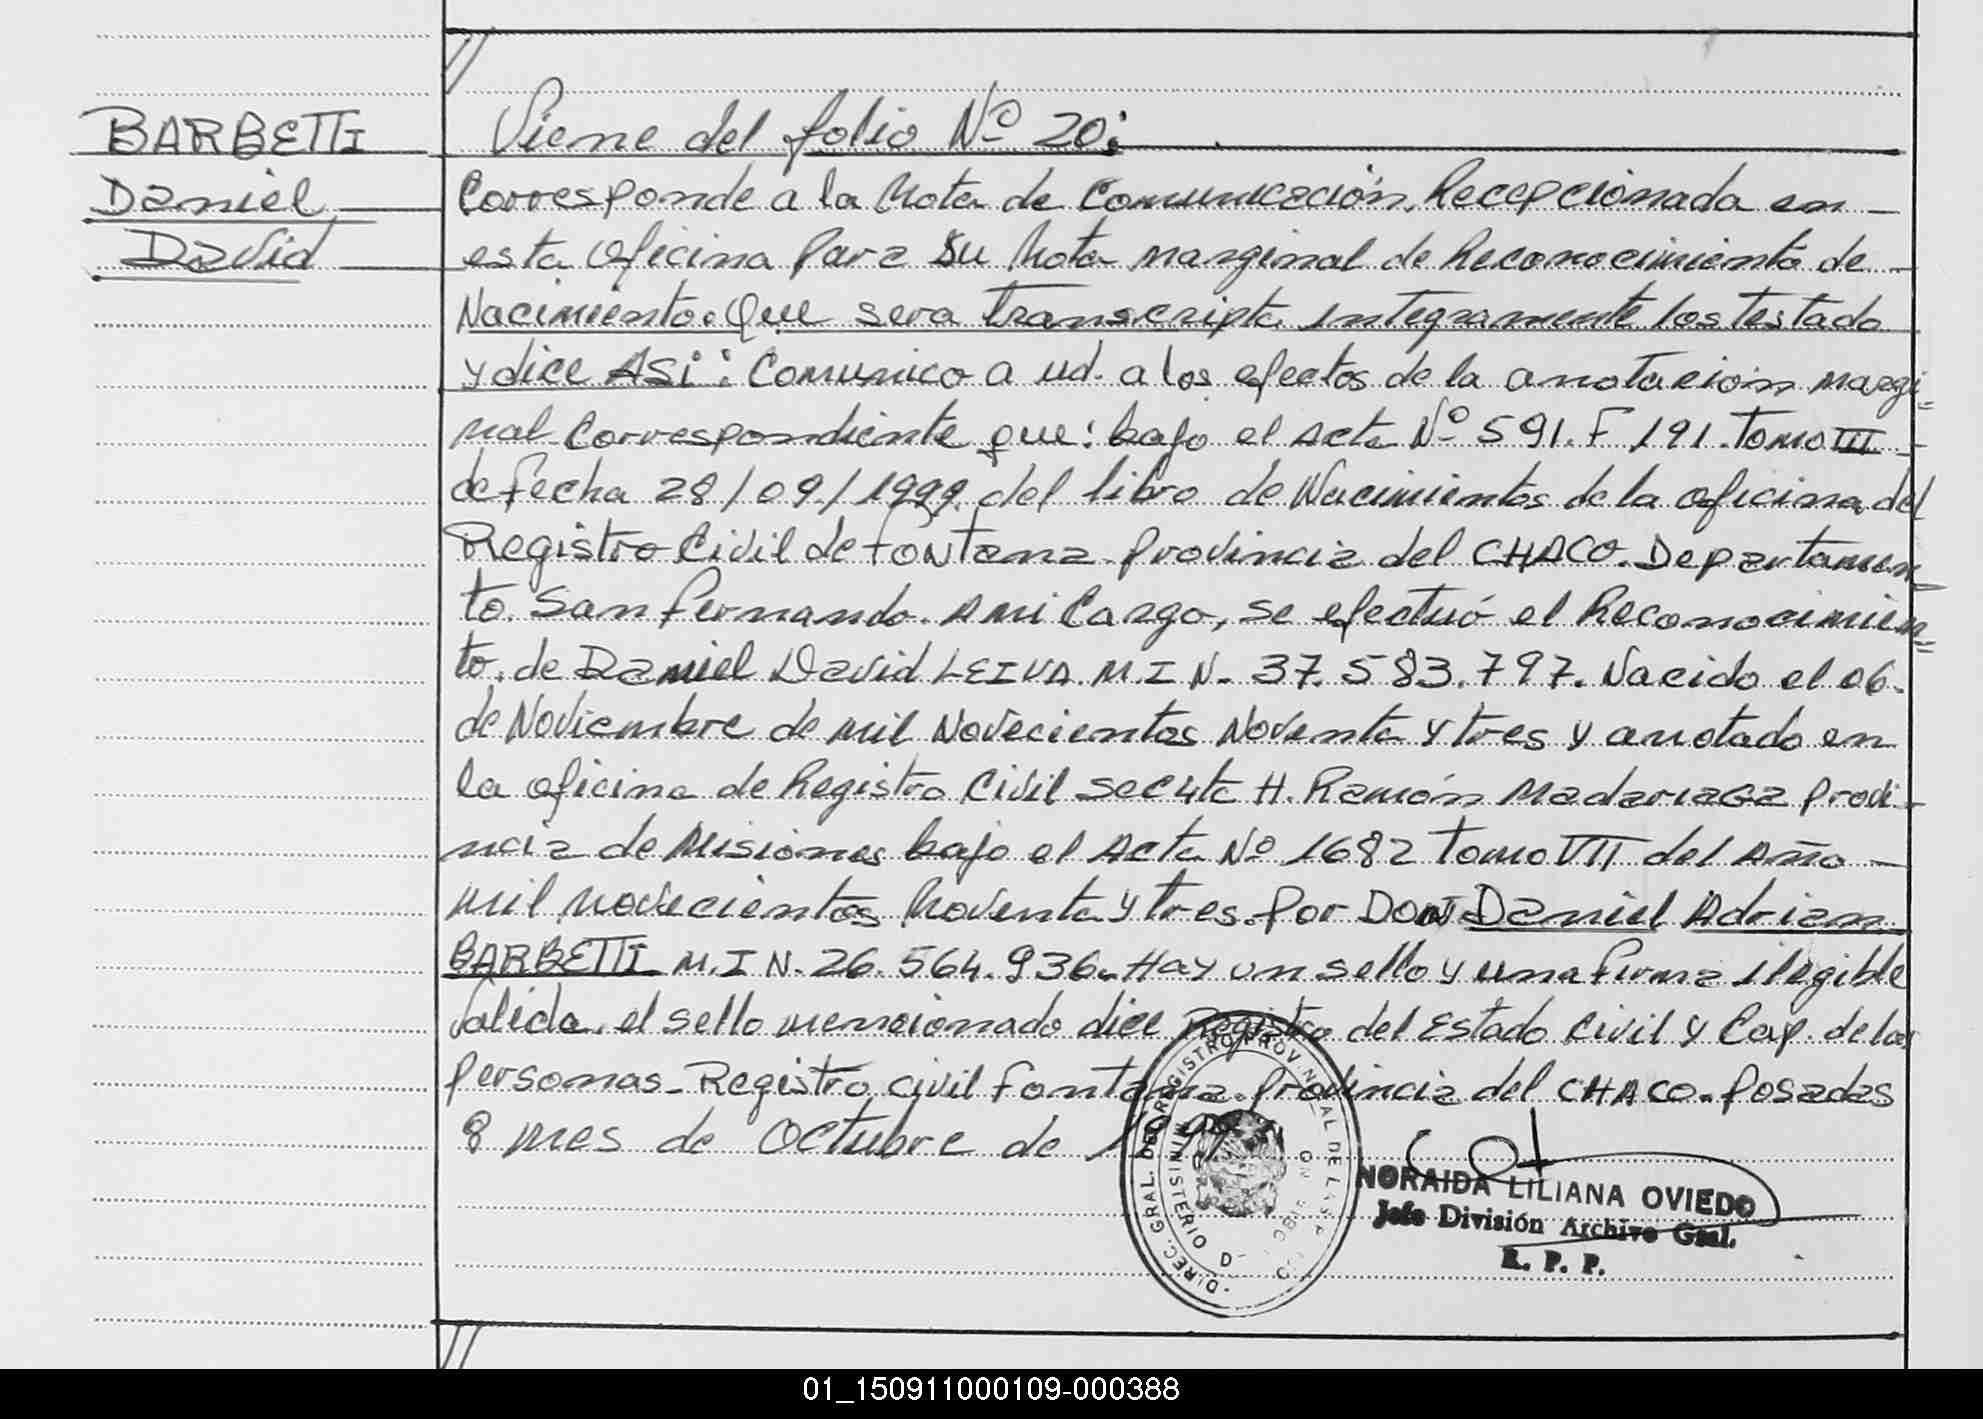 BARBETTI
Daniel
David
Viene del folio Nº 20:
Corresponde a la Nota de Comunicación, Recepcionada en
esta Oficina Para su Nota marginal de Reconocimiento de
Nacimiento. Que sera transcripta integramente los testado
y dice ASi: Comunico a ud. a los efectos de la anotación margi
nal Correspondiente que: bajo el acta Nº 591. F 191. Tomo III
de fecha 28/09/1999. del libro de Nacimientos de la oficina del
Registro Civil de Fontana Provincia del CHACO. Departamen
to. San Fernando. A mi Cargo, se efectuó el Reconocimien
to. de Daniel David LEIVA. M.I N. 37.583.797. Nacido el 06.
de Noviembre de mil Novecientos Noventa y tres y anotado en
la oficina de Registro Civil sec 4ta H. Ramón Madariaga Provi
ncia de Misiones bajo el Acta Nº 1682 Tomo VII del Año
mil novecientos Noventa y tres. Por DON Daniel Adrian
BARBETTI M.I N. 26.564.936. Hay un sello y una firma ilegible
Valida. el sello mencionado dice Registro del Estado Civil y Cap. de las
Personas - Registro Civil Fontana. Provincia del CHACO. Posadas
8 mes de Octubre de
DIREC. GRAL. DEL REGISTRO PROVINCIAL DE LAS
MINISTERIO DE
NORAIDA LILIANA OVIEDO
Jefe División Archivo Gral.
R. P. P.
01_150911000109-000388